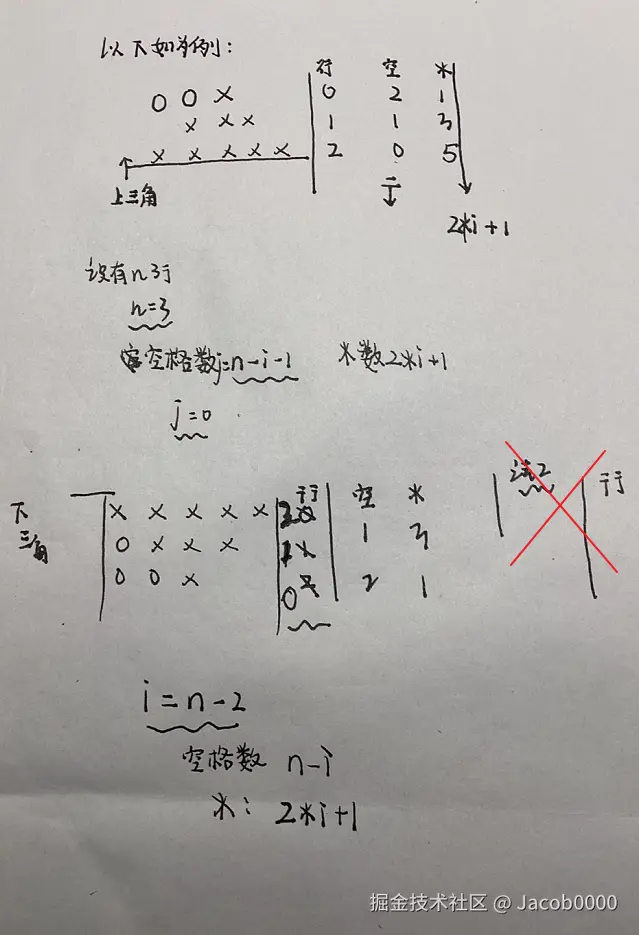 以下如为例:
行 空 米
0 0 × 0 2 1
× × × 1 1 3
× × × × × 2 0 5
上三角
2*i+1
设有n行
n=3
空格数j=n-i-1 米数2*i+1
j=0
下三角 行 空 米 行
× × × × × 2
0 × × × 1 1 3
0 0 × 0 2 1
i=n-2
空格数 n-i
米: 2*i+1
掘金技术社区 @ Jacob0000